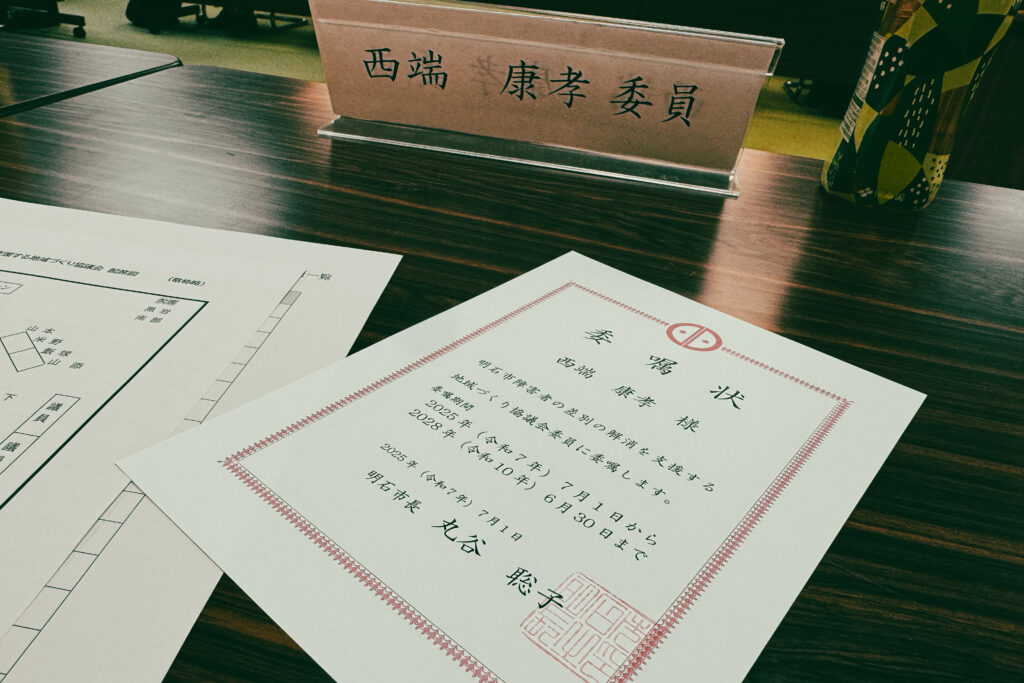 西端 康孝 委員
支援する地域づくり協議会 配席図
(敬称略)
一覧
黒岩
南部
山本
米野
飯塚
山添
下
議員
議員
委嘱状
西端 康孝 様
明石市障害者の差別の解消を支援する
地域づくり協議会委員に委嘱します。
委嘱期間
2025年(令和7年)7月1日から
2028年(令和10年)6月30日まで
2025年(令和7年)7月1日
明石市長 丸谷 聡子